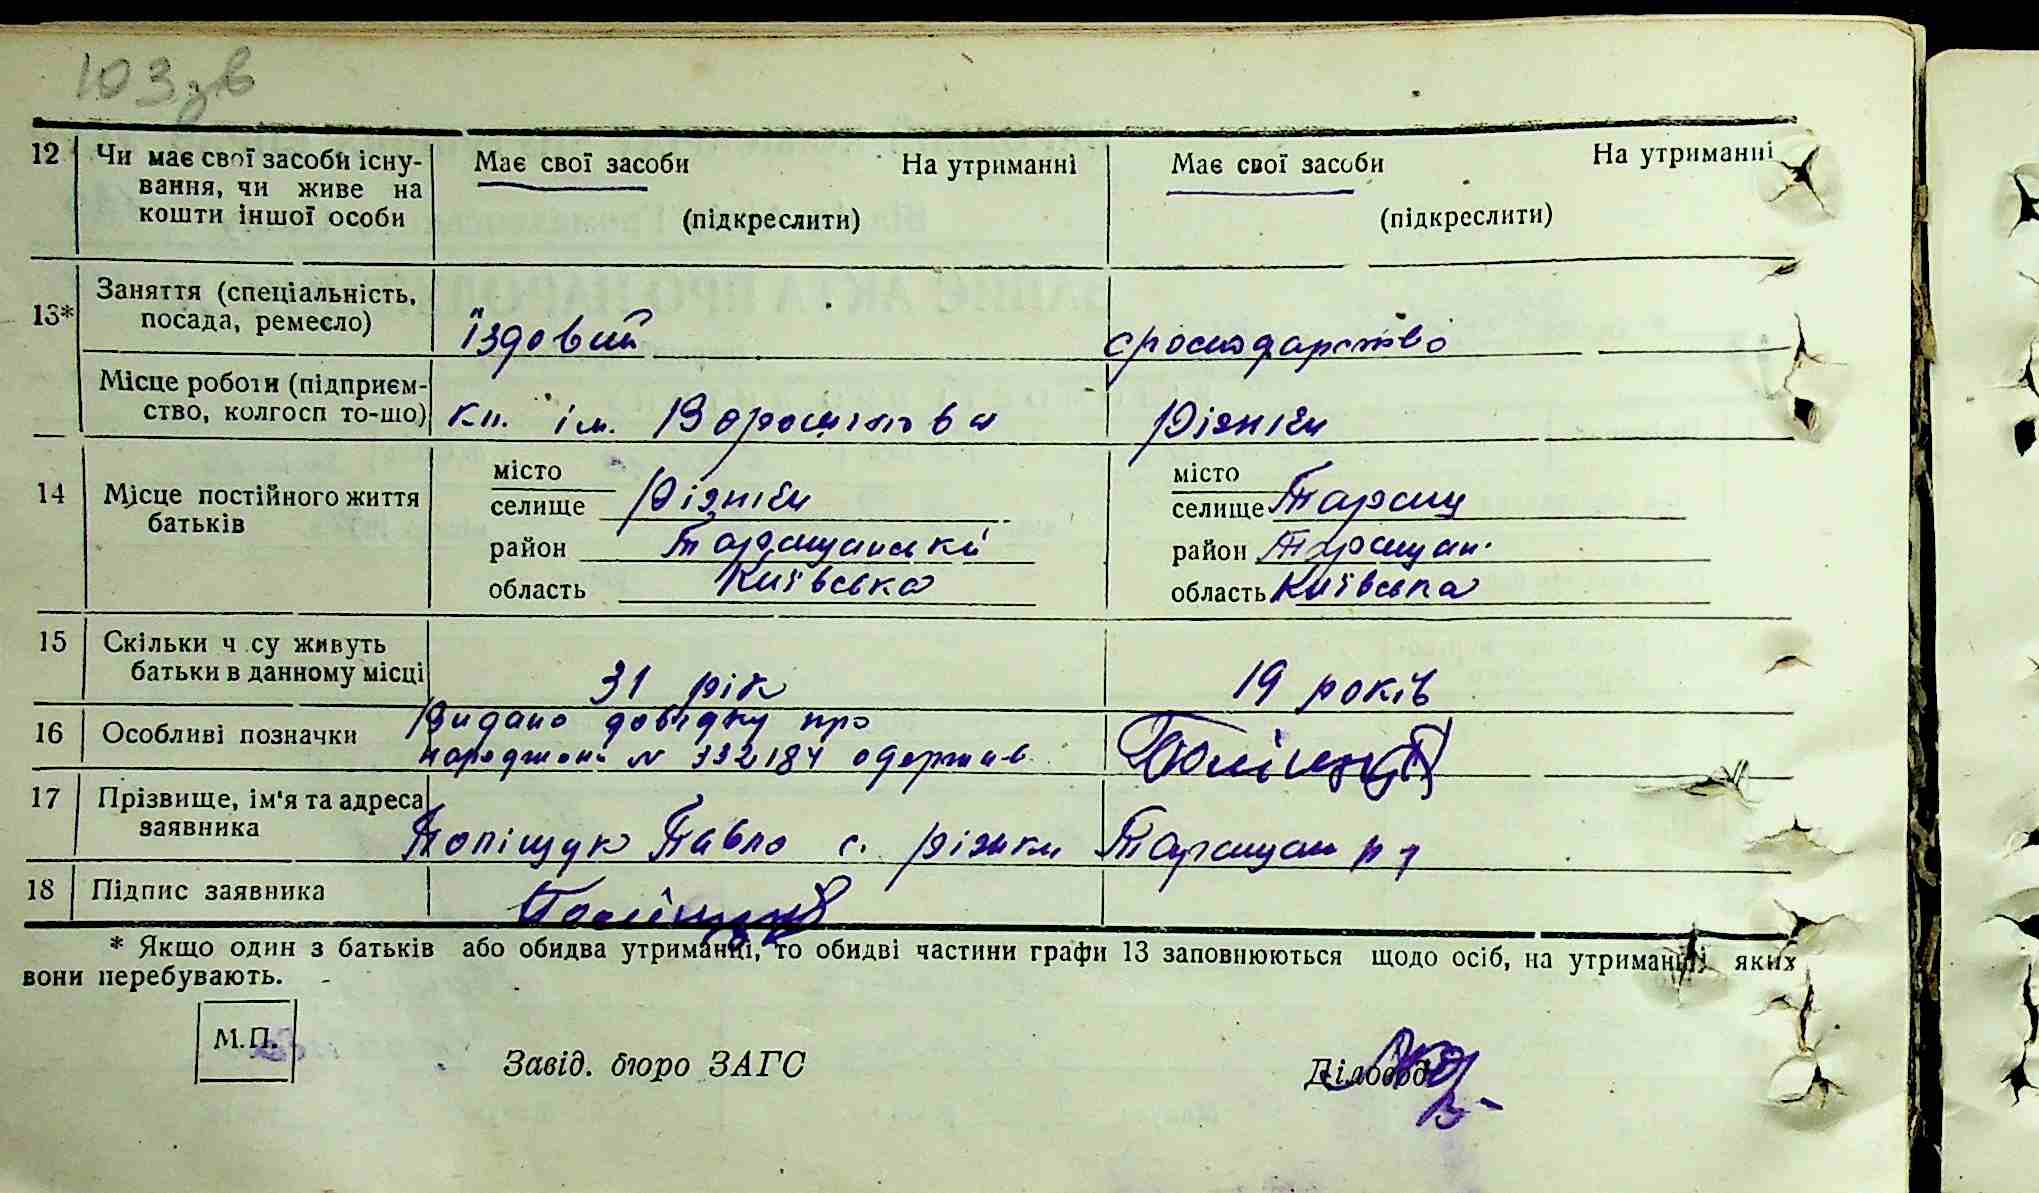 103 зв
12 Чи має свої засоби існу- Має свої засоби На утриманні Має свої засоби На утриманні
вання, чи живе на
кошти іншої особи (підкреслити) (підкреслити)
Заняття (спеціальність,
13* посада, ремесло) їздовий господарство
Місце роботи (підприєм-
ство, колгосп то-що) кп. ім. Ворошілова Різніки
місто місто
14 Місце постійного життя селище Різніки селище Таращ
батьків район Таращанській район Таращан.
область Київська область Київська
15 Скільки ч су живуть
батьки в данному місці 31 рік 19 років
16 Особливі позначки Видано довідку про
народжен. N 332184 одержав Поліщук
17 Прізвище, ім'я та адреса
заявника Поліщук Павло с. різники Таращан р-н
18 Підпис заявника Поліщук
* Якщо один з батьків або обидва утриманці, то обидві частини графи 13 заповнюються щодо осіб, на утриманні яких
вони перебувають.
М.П.
Завід. бюро ЗАГС Діловод